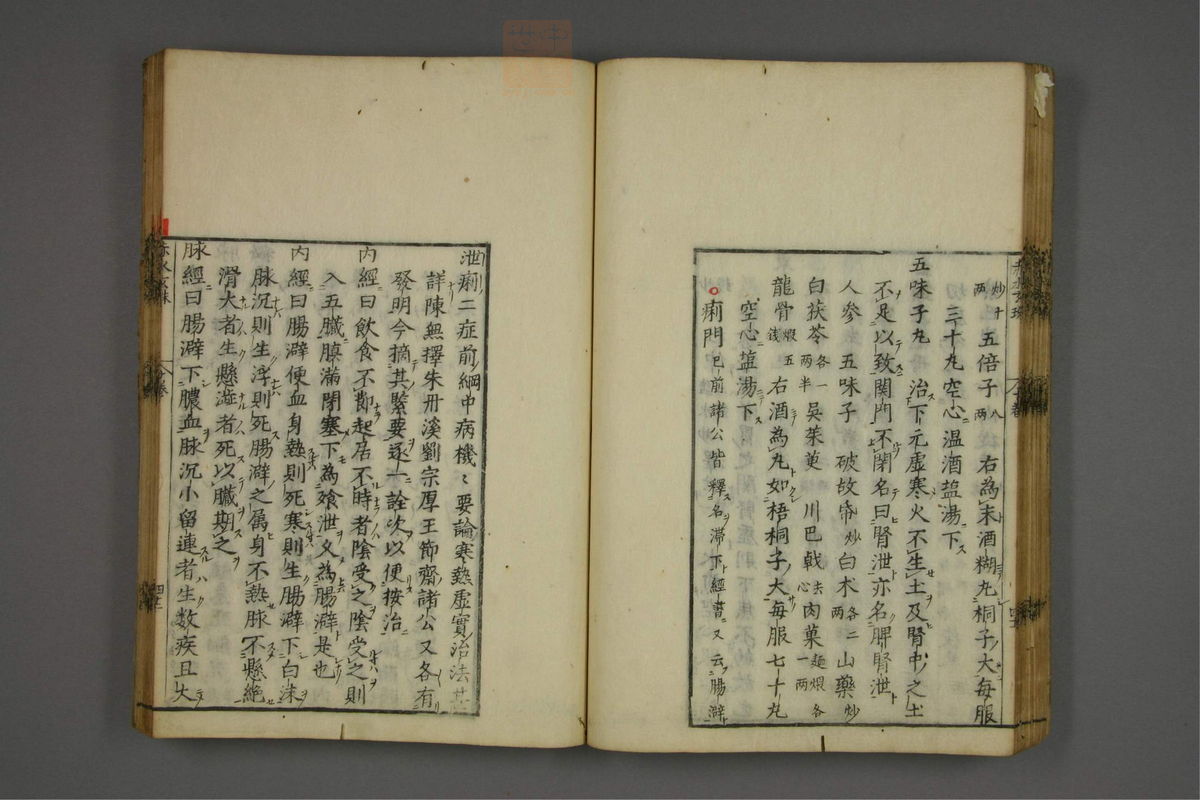 炒十両 五倍子八両 右為末酒糊丸桐子大毎服
三十丸空心温酒塩湯下
五味子丸 治下元虚寒火不生土及腎中之土
不足以致関門不閉名曰腎泄亦名脾腎泄
人参 五味子 破故帋炒 白朮各二両 山薬炒
白茯苓各一両半 呉茱萸 川巴戟去心 肉菓麺煨各一両
龍骨煆五銭 右酒為丸如梧桐子大毎服七十丸
空心塩湯下
痢門 已前諸公皆釋名滞下經書又云腸澼
泄痢二症前綱中病機〻要論寒熱虚實治法甚
詳陳無擇朱丹溪劉宗厚王節齋諸公又各有
發明今摘其緊要逐一詮次以便按治
内經曰飲食不節起居不時者陰受之陰受之則
入五臓䐜滿閉塞下為飱泄久為腸澼是也
内經曰腸澼便血身熱則死寒則生腸澼下白沫
脉沉則生浮則死腸澼之属身不熱脉不懸絶
滑大者生懸濇者死以臓期之
脉經曰腸澼下膿血脉沉小留連者生数疾且大